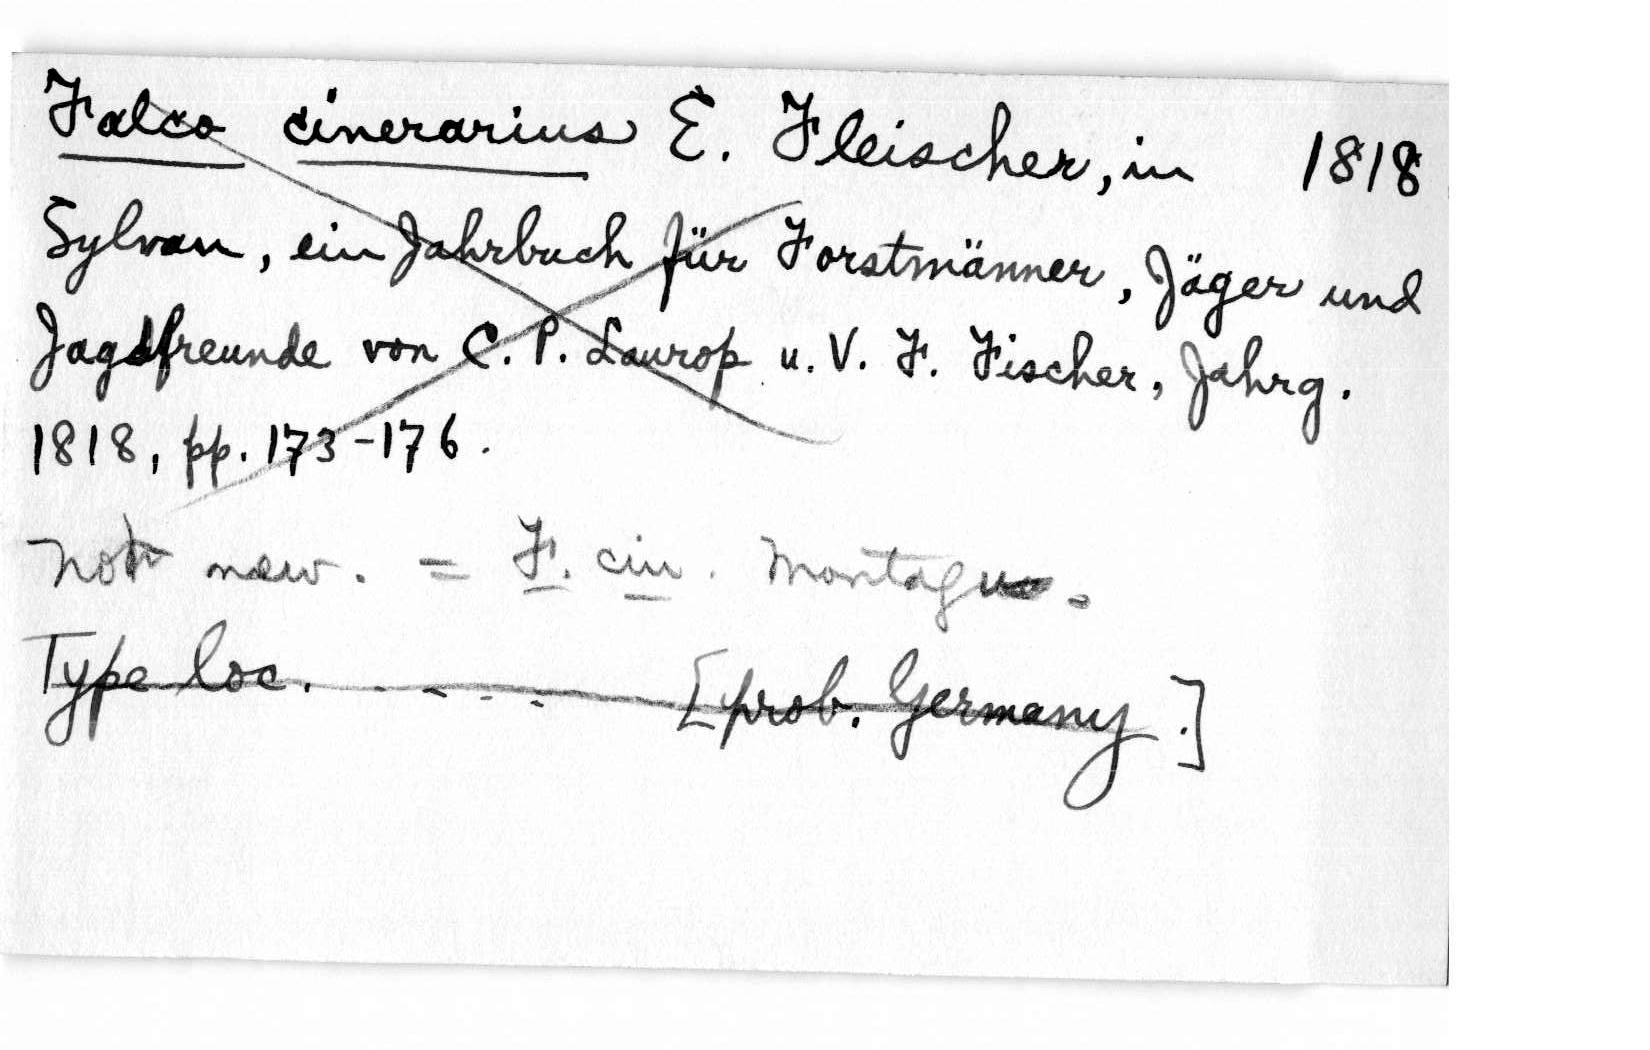 Falco cinerarius E. Fleischer, in 1818
Sylvan, ein Jahrbuch für Forstmänner, Jäger und
Jagdfreunde von C. P. Laurop u. V. F. Fischer, Jahrg.
1818, pp. 173-176.
Not new. = F. cin. Montagu.
Type loc. . . . . [prob. Germany.]